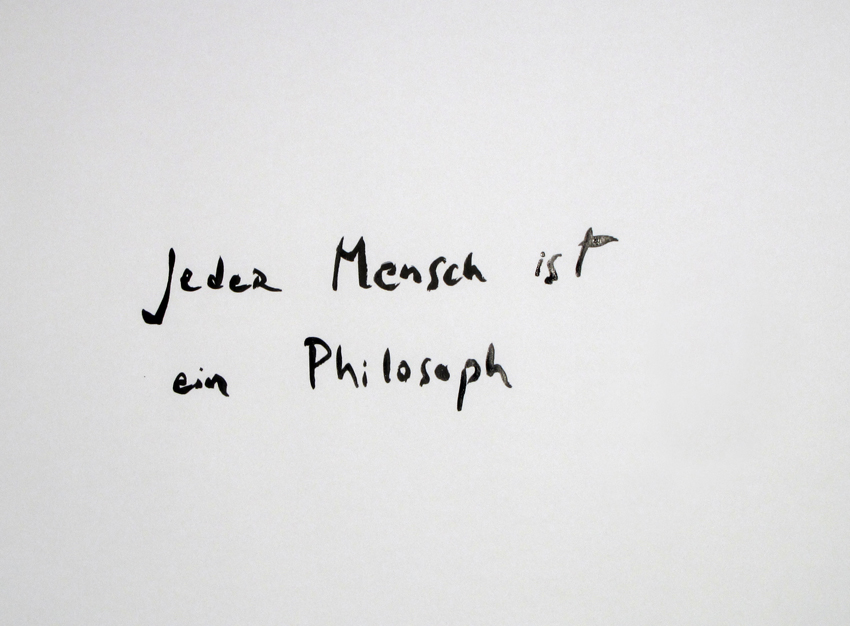 Jeder Mensch ist
ein Philosoph